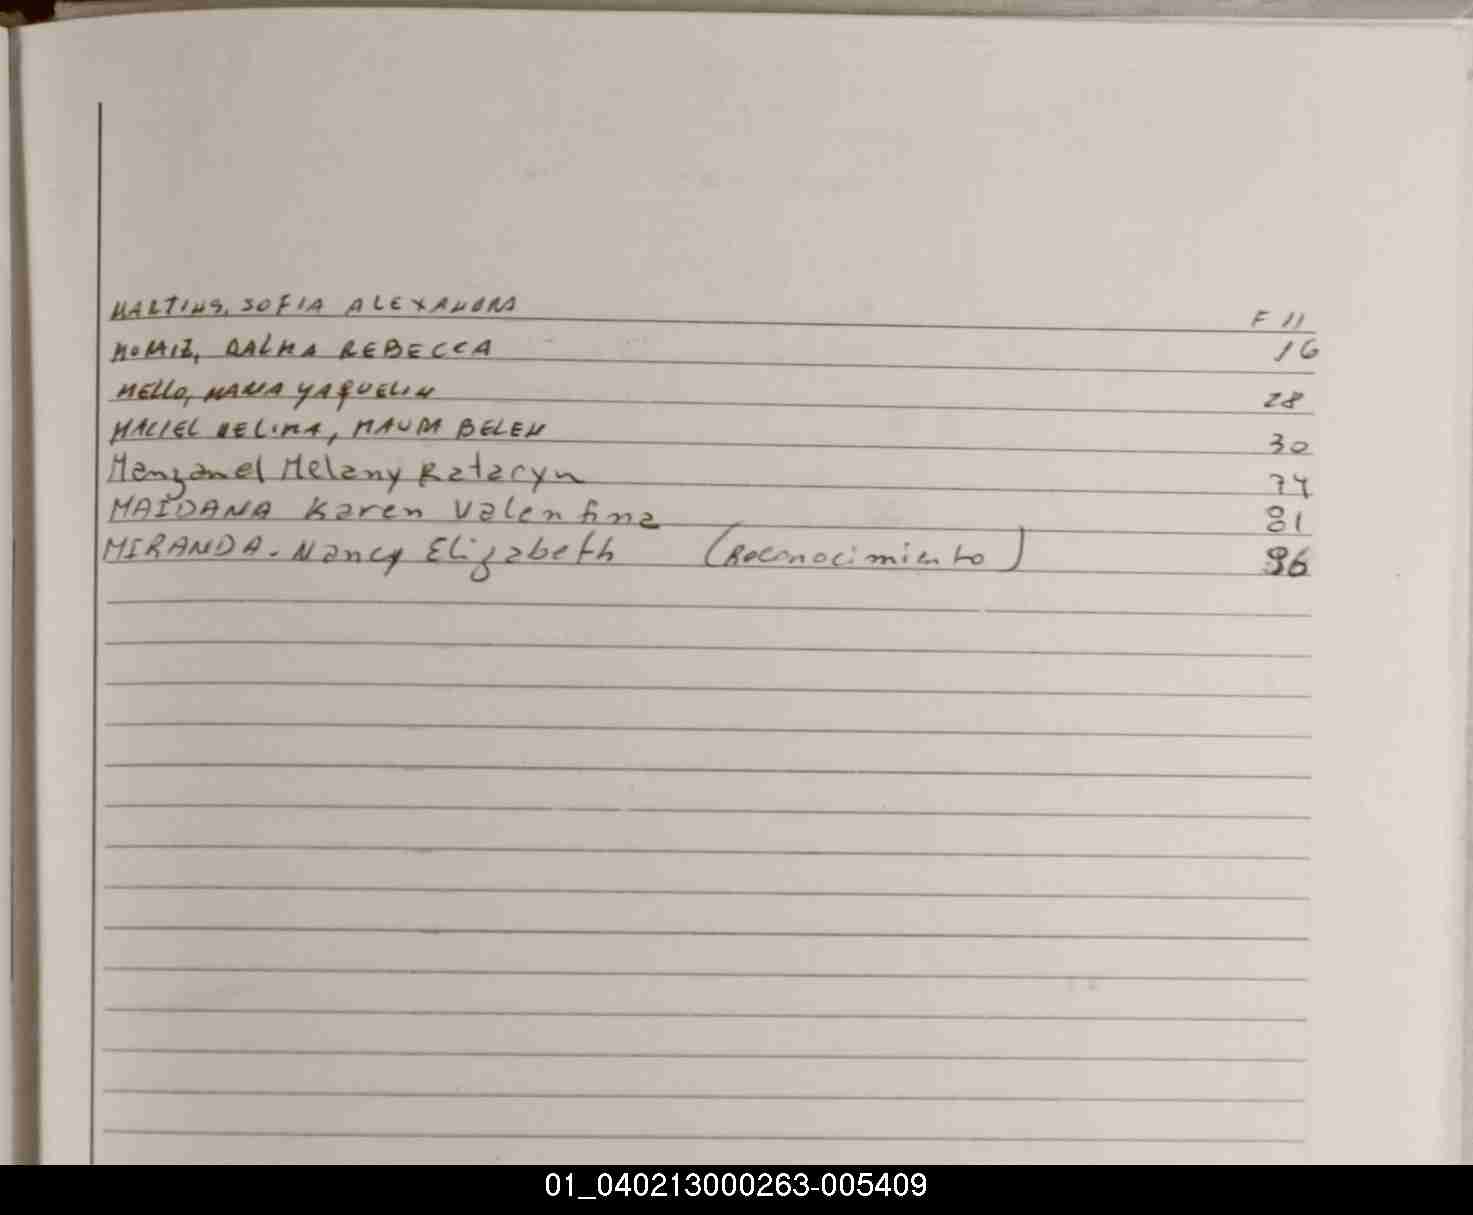 MARTINS, SOFIA ALEXANDRA F 11
MORAIZ, DALMA REBECCA 16
MELLO, MARIA YAQUELIN 28
MACIEL DELIMA, MAURA BELEN 30
Manzanel Melany Katacyn 74
MAIDANA Karen Valentina 81
MIRANDA. Nancy Elizabeth (Reconocimiento) 96
01_040213000263-005409